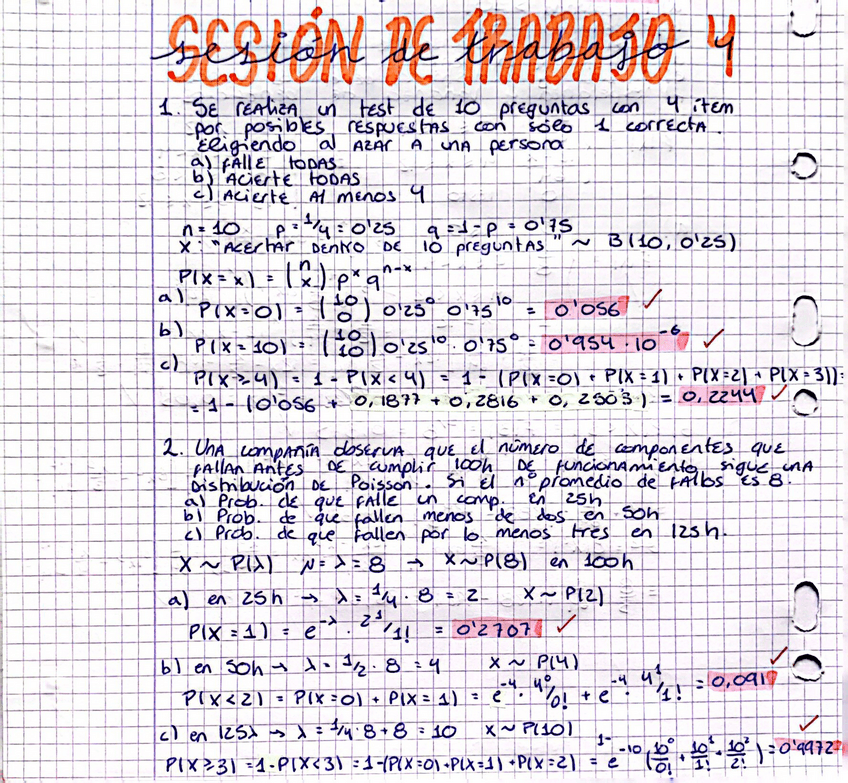 SESIÓN DE TRABAJO 4
sesión de trabajo
1. SE REALIZA un test de 10 preguntas con 4 item
por posibles respuestas con sólo 1 correcta.
Eligiendo al AZAR A UNA persona
a) FALLE TODAS
b) ACIERTE TODAS
c) ACIERTE Al MENOS 4
n=10 p=1/4=0'25 q=1-p=0'75
X: "ACERTAR DENTRO DE 10 preguntas" ~ B(10, 0'25)
P(X=x) = (n x) p^x q^n-x
a) P(X=0) = (10 0) 0'25^0 0'75^10 = 0'056 ✓
b) P(X=10) = (10 10) 0'25^10 · 0'75^0 = 0'954·10^-6 ✓
c) P(X≥4) = 1 - P(X<4) = 1 - (P(X=0) + P(X=1) + P(X=2) + P(X=3)) =
= 1 - (0'056 + 0,1877 + 0,2816 + 0,2503) = 0,2244 ✓
2. UNA compañía observa que el número de componentes que
FALLAN ANTES DE cumplir 100h DE funcionamiento sigue UNA
Distribución DE Poisson. Si el nº promedio de FAllos ES 8.
a) Prob. de que FALLE un comp. en 25h
b) Prob. de que fallen menos de dos en 50h
c) Prob. de que fallen por lo menos tres en 125h.
X ~ P(λ) μ = λ = 8 → X ~ P(8) en 100h
a) en 25h → λ = 1/4 · 8 = 2 X ~ P(2)
P(X=1) = e^-λ · 2^1/1! = 0'2707 ✓
b) en 50h → λ = 1/2 · 8 = 4 X ~ P(4)
P(X<2) = P(X=0) + P(X=1) = e^-4 · 4^0/0! + e^-4 · 4^1/1! = 0,091 ✓
c) en 125λ → λ = 1/4·8+8 = 10 X ~ P(10)
P(X≥3) = 1-P(X<3) = 1-(P(X=0)+P(X=1)+P(X=2) = 1-e^-10 (10^0/0! + 10^1/1! + 10^2/2!) = 0'9972 ✓